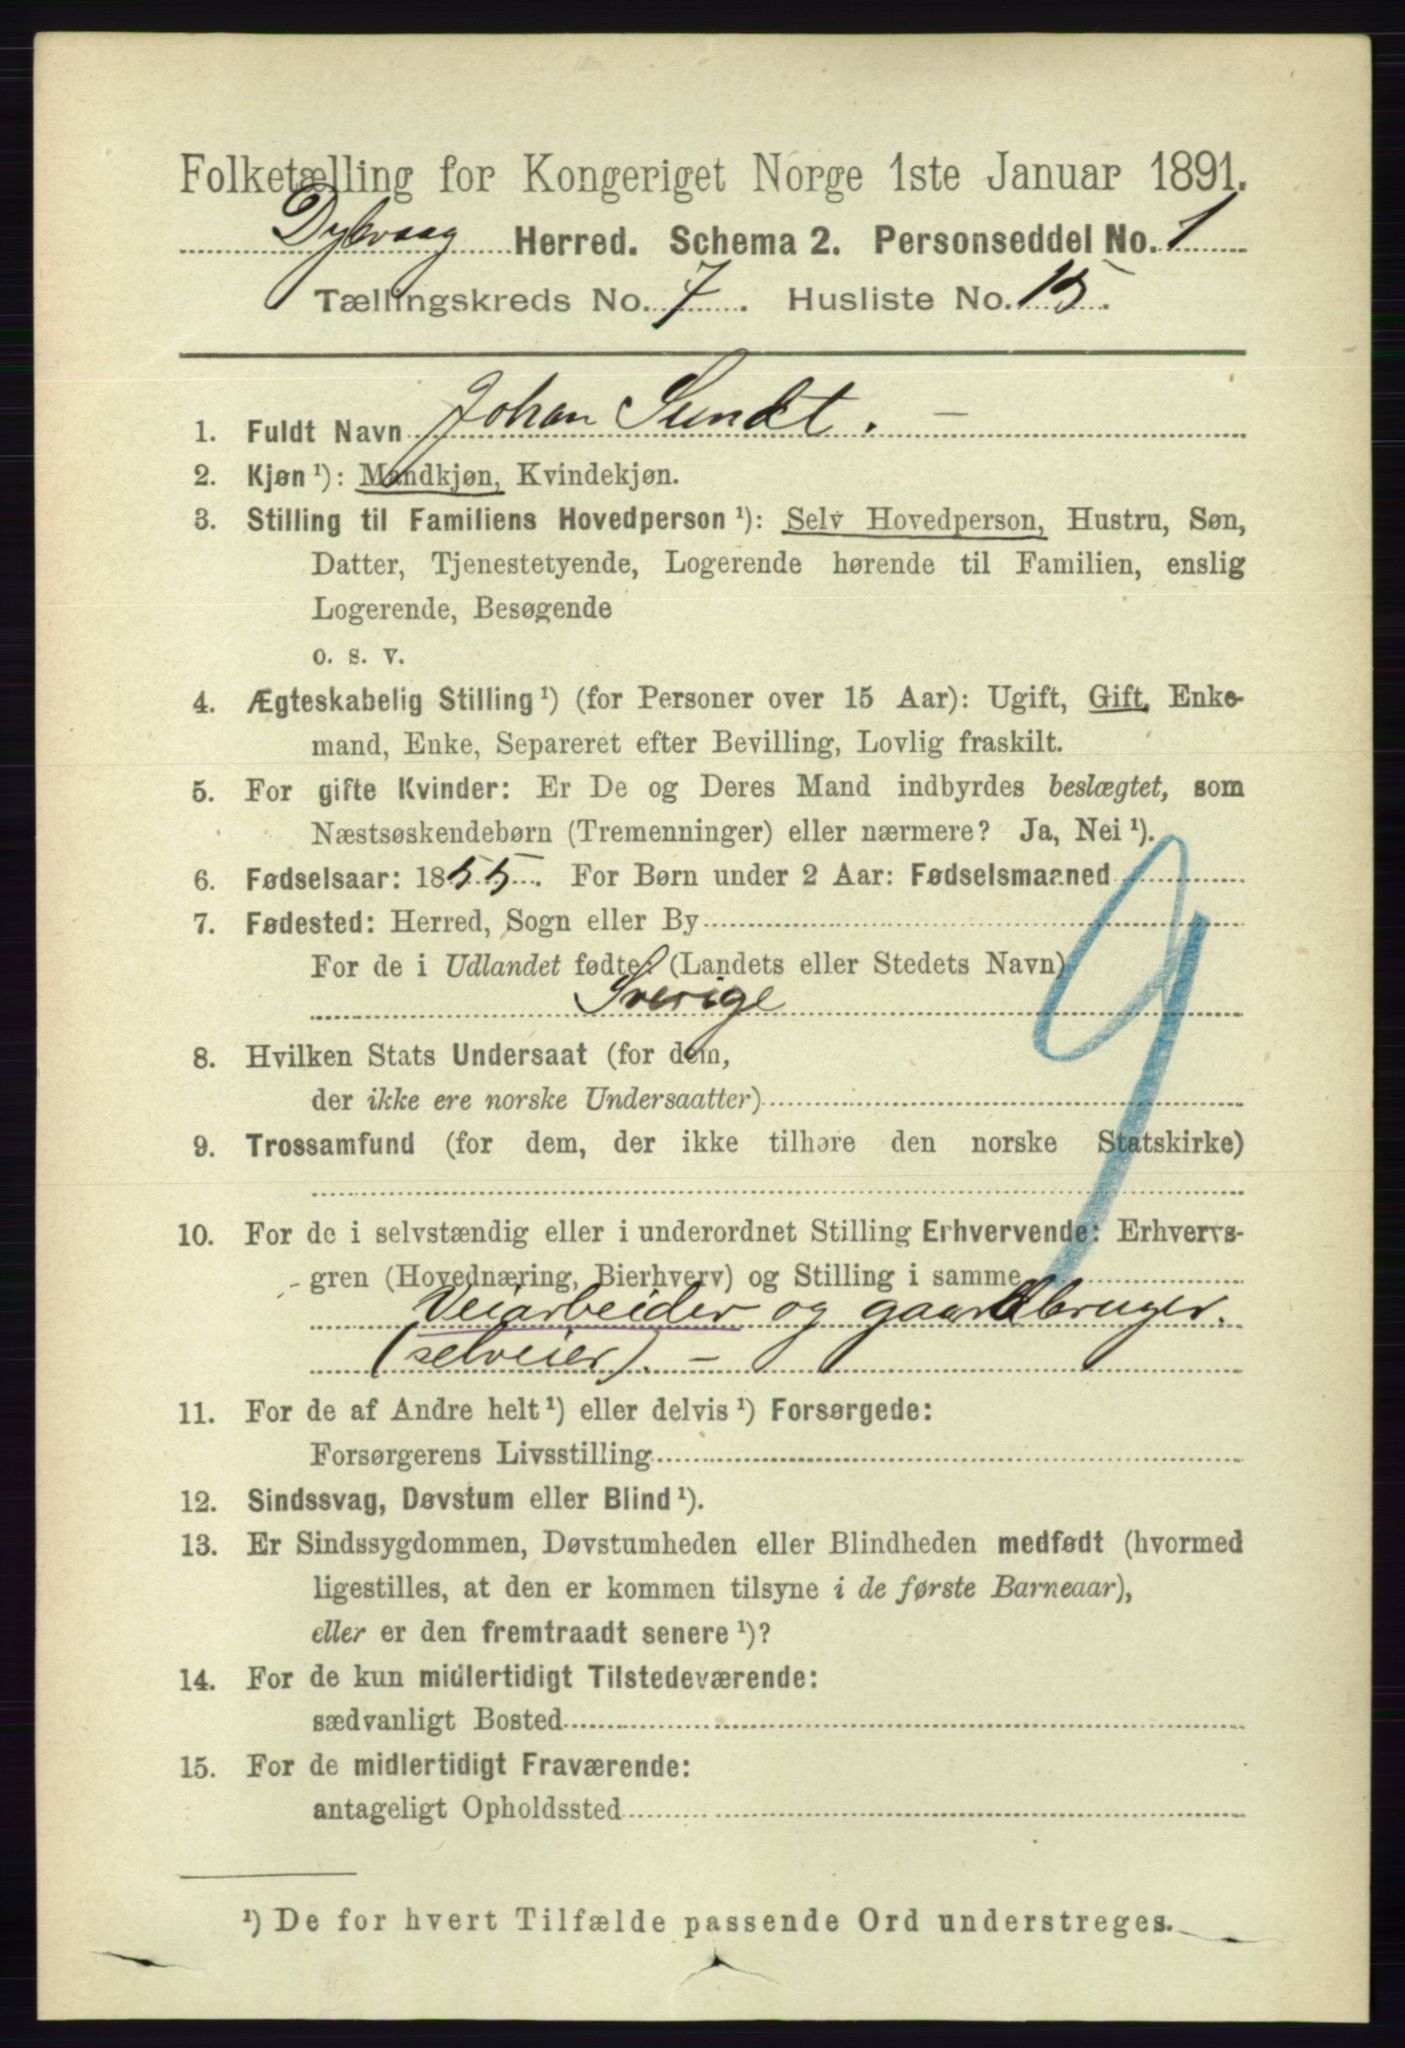 Folketælling for Kongeriget Norge 1ste Januar 1891.
Dybvaag Herred. Schema 2. Personseddel No. 1
Tællingskreds No. 7. Husliste No. 15.
1. Fuldt Navn Johan Sundt. —
2. Kjøn ¹): Mandkjøn, Kvindekjøn.
3. Stilling til Familiens Hovedperson ¹): Selv Hovedperson, Hustru, Søn,
Datter, Tjenestetyende, Logerende hørende til Familien, enslig
Logerende, Besøgende
o. s. v.
4. Ægteskabelig Stilling ¹) (for Personer over 15 Aar): Ugift, Gift, Enke-
mand, Enke, Separeret efter Bevilling, Lovlig fraskilt.
5. For gifte Kvinder: Er De og Deres Mand indbyrdes beslægtet, som
Næstsøskendebørn (Tremenninger) eller nærmere? Ja, Nei ¹).
6. Fødselsaar: 1855. For Børn under 2 Aar: Fødselsmaaned
7. Fødested: Herred, Sogn eller By
For de i Udlandet fødte: (Landets eller Stedets Navn)
Sverige
8. Hvilken Stats Undersaat (for dem,
der ikke ere norske Undersaatter)
9. Trossamfund (for dem, der ikke tilhøre den norske Statskirke)
10. For de i selvstændig eller i underordnet Stilling Erhvervende: Erhvervs-
gren (Hovednæring, Bierhverv) og Stilling i samme
Veiarbeider og gaardbruger.
(selveier). —
11. For de af Andre helt ¹) eller delvis ¹) Forsørgede:
Forsørgerens Livsstilling
12. Sindssvag, Døvstum eller Blind ¹).
13. Er Sindssygdommen, Døvstumheden eller Blindheden medfødt (hvormed
ligestilles, at den er kommen tilsyne i de første Barneaar),
eller er den fremtraadt senere ¹)?
14. For de kun midlertidigt Tilstedeværende:
sædvanligt Bosted
15. For de midlertidigt Fraværende:
antageligt Opholdssted
¹) De for hvert Tilfælde passende Ord understreges.
9